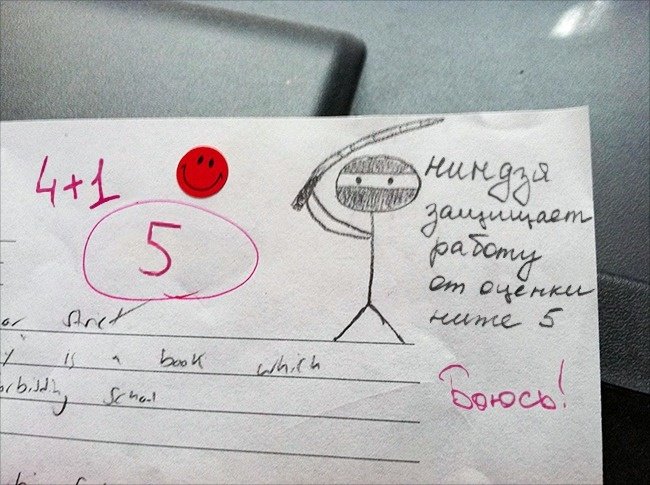 4+1
5
ниндзя
защищает
работу
от оценки
ниже 5
Боюсь!
or strict
is a book which
School